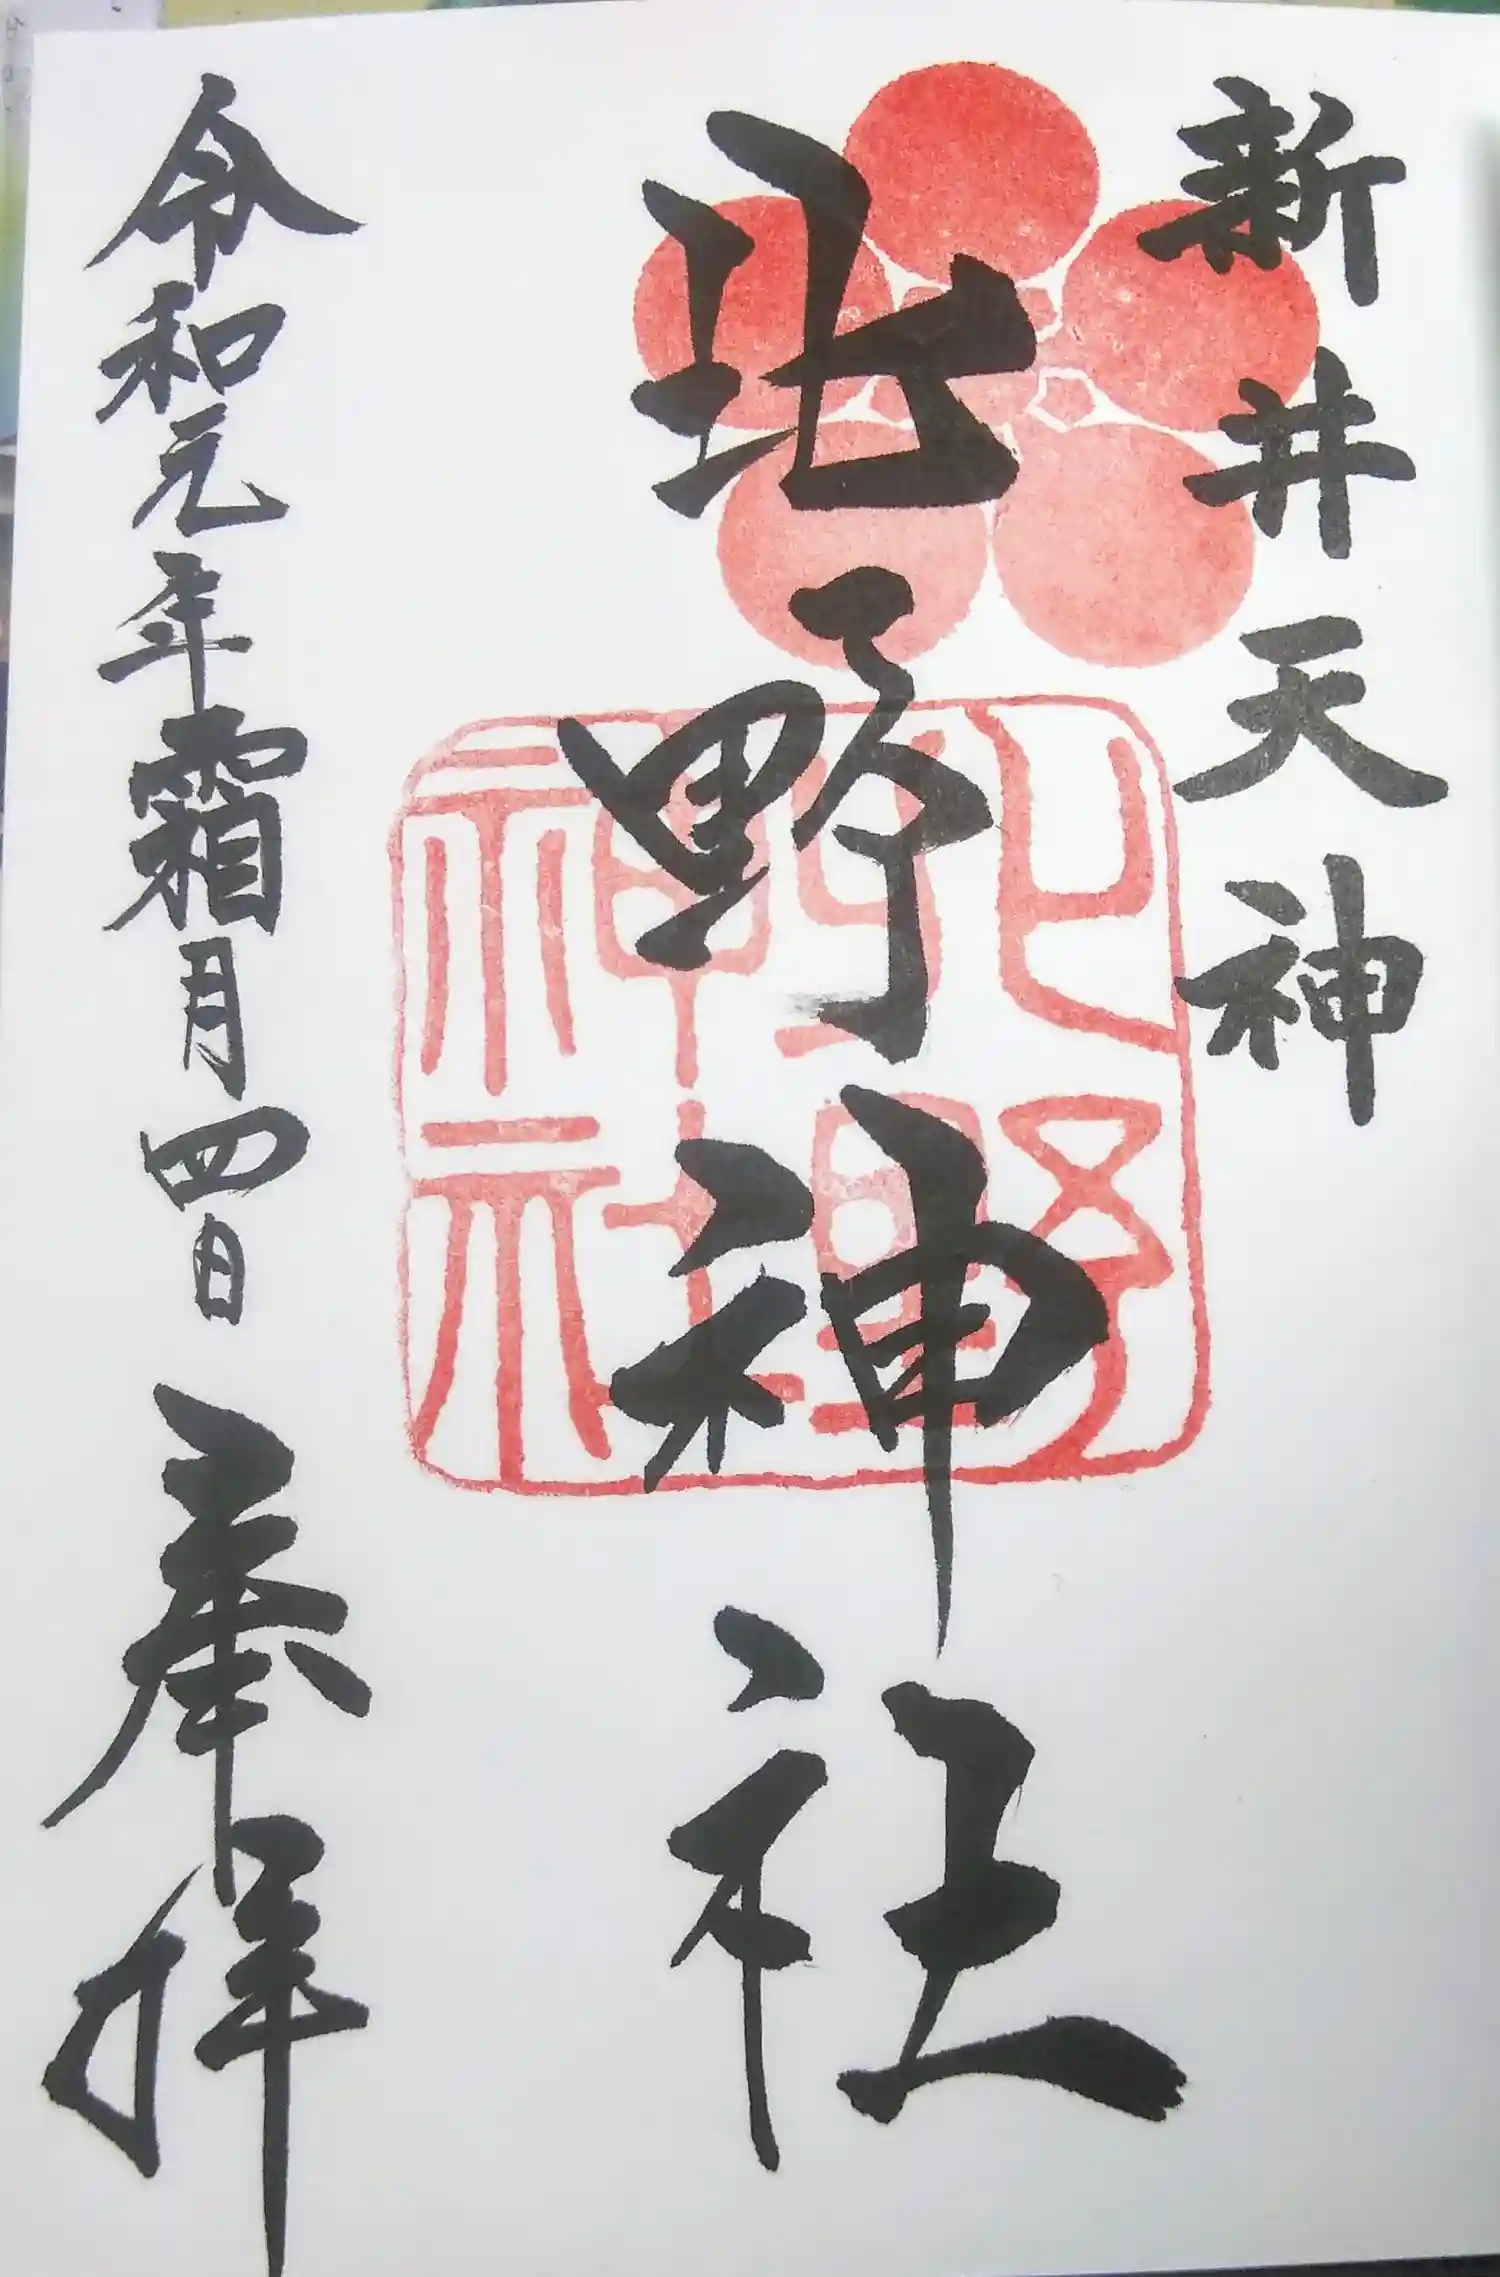 新井天神
北野神社
北野
神社
令和元年霜月四日 奉拝